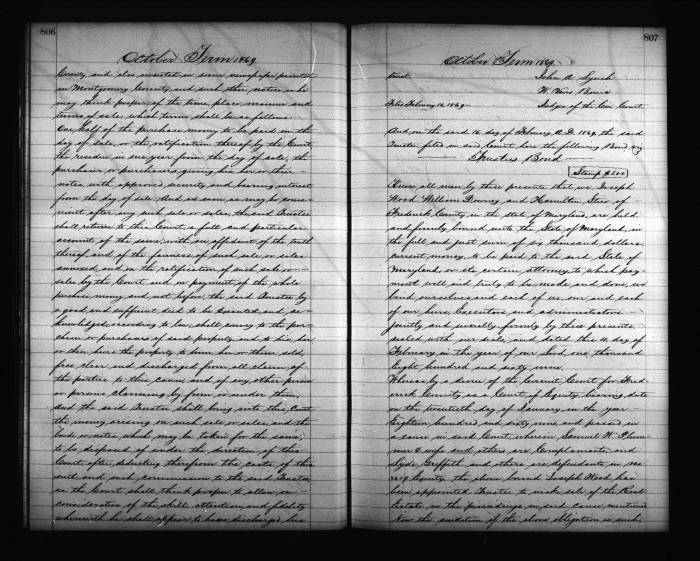 806
October Term 1869.
County, and also inserted in some newspaper printed
in Montgomery County, and such other notice as he
may think proper, of the time, place, manner and
terms of sale, which terms shall be as follows:
One half of the purchase money to be paid on the
day of sale, or the ratification thereof by the Court,
the residue in one year from the day of sale, the
purchaser or purchasers giving his, her or their
notes, with approved security, and bearing interest
from the day of sale. And as soon as may be conve-
nient after any such sale or sales, the said Trustee
shall return to this Court, a full and particular
account of the same, with an affidavit of the truth
thereof and of the fairness of such sale or sales
annexed, and on the ratification of such sale or
sales by the Court, and on payment of the whole
purchase money and not before, the said Trustee by
a good and sufficient deed to be executed and ac-
knowledged, according to law, shall convey to the pur-
chaser or purchasers of said property and to his, her
or their heirs the property to him, her or them sold,
free, clear and discharged from all claim of
the parties to this cause, and of any other person
or persons claiming by, from or under them,
And the said Trustee shall bring into this Court
the money arising on such sale or sales, and the
bonds or notes which may be taken for the same,
to be disposed of under the direction of this
Court after deducting therefrom the costs of this
suit, and such commission to the said Trustee,
as the Court shall think proper to allow, on
consideration of the skill, attention, and fidelity
wherewith he shall appear to have discharged his
807
October Term 1869.
trust.
John A. Lynch
W. Veirs Bouic
Filed February 16, 1869
Judges of the Cir. Court.
And on the said 16 day of February A.D. 1869, the said
Trustee filed in said Court here the following Bond viz
Trustees Bond
Stamp $1.00
Know all men by these presents that we, Joseph
Wood William Downey and Hamilton Stier of
Frederick County in the state of Maryland, are held
and firmly bound unto the State of Maryland, in
the full and just sum of six thousand dollars,
current money, to be paid to the said State of
Maryland or its certain attorney, to which pay-
ment well and truly to be made and done, we
bind ourselves and each of us, our and each
of our heirs, Executors and administrators
jointly and severally firmly by these presents
sealed with our seals, and dated this 11 day of
February in the year of our Lord, one thousand
Eight hundred and sixty nine.
Whereas by a decree of the Circuit Court for Fred-
erick County as a Court of Equity, bearing date
on the twentieth day of January in the year
Eighteen hundred and sixty nine and passed in
a cause in said Court, wherein Samuel W. Plum-
mer & wife and others are Complainants, and
Lyde Griffith and others are defendants in No
3219 Equity, the above bound Joseph Wood has
been appointed Trustee to make sale of the Real
Estate in the proceedings in said cause mentioned
Now the condition of the above obligation is such,